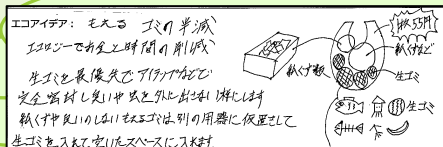 エコアイデア: もえる ゴミの半減
エコロジーでお金と時間の削減
生ゴミを最優先で
完全密封し臭いや虫を外に出さない様にします
紙くずや臭いのしないもえるゴミは別の用器に仮置きして
生ゴミを入れて空いたスペースに入れます
1枚55円
紙くずなど
紙くず類
生ゴミ
生ゴミ